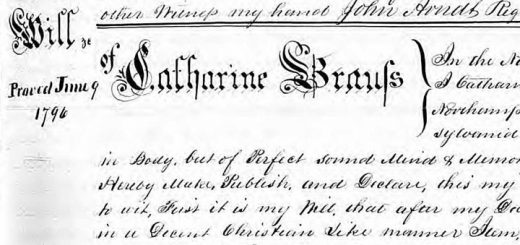 other Witness my hand John Arndt Reg
Will &c
of Catharine Brauss
Proved June 9
1796
In the N
I Cathar
Northamp
sylvania
in Body, but of Perfect sound Mind & Memor
Hereby Make, Publish, and Declare, this my
to wit, First it is my Will, that after my De
in a Decent Christian like manner Item,